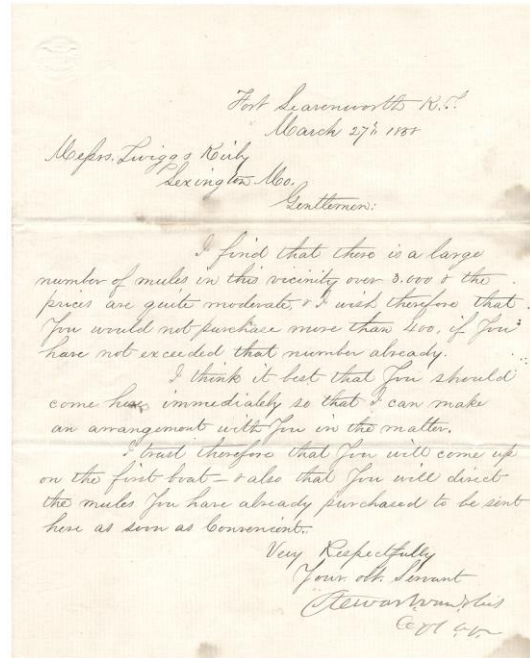 Fort Leavenworth K.T.
March 27th 1858
Messrs. Twiggs & Kirby
Lexington Mo.
Gentlemen:
I find that there is a large
number of mules in this vicinity over 3.000 & the
prices are quite moderate, & I wish therefore that
You would not purchase more than 400, if You
have not exceeded that number already.
I think it best that You should
come here immediately so that I can make
an arrangement with You in the matter.
I trust therefore that You will come up
on the first boat – & also that You will direct
the mules You have already purchased to be sent
here as soon as Convenient.
Very Respectfully
Your obt. Servant
Stewart Van Vliet
Capt